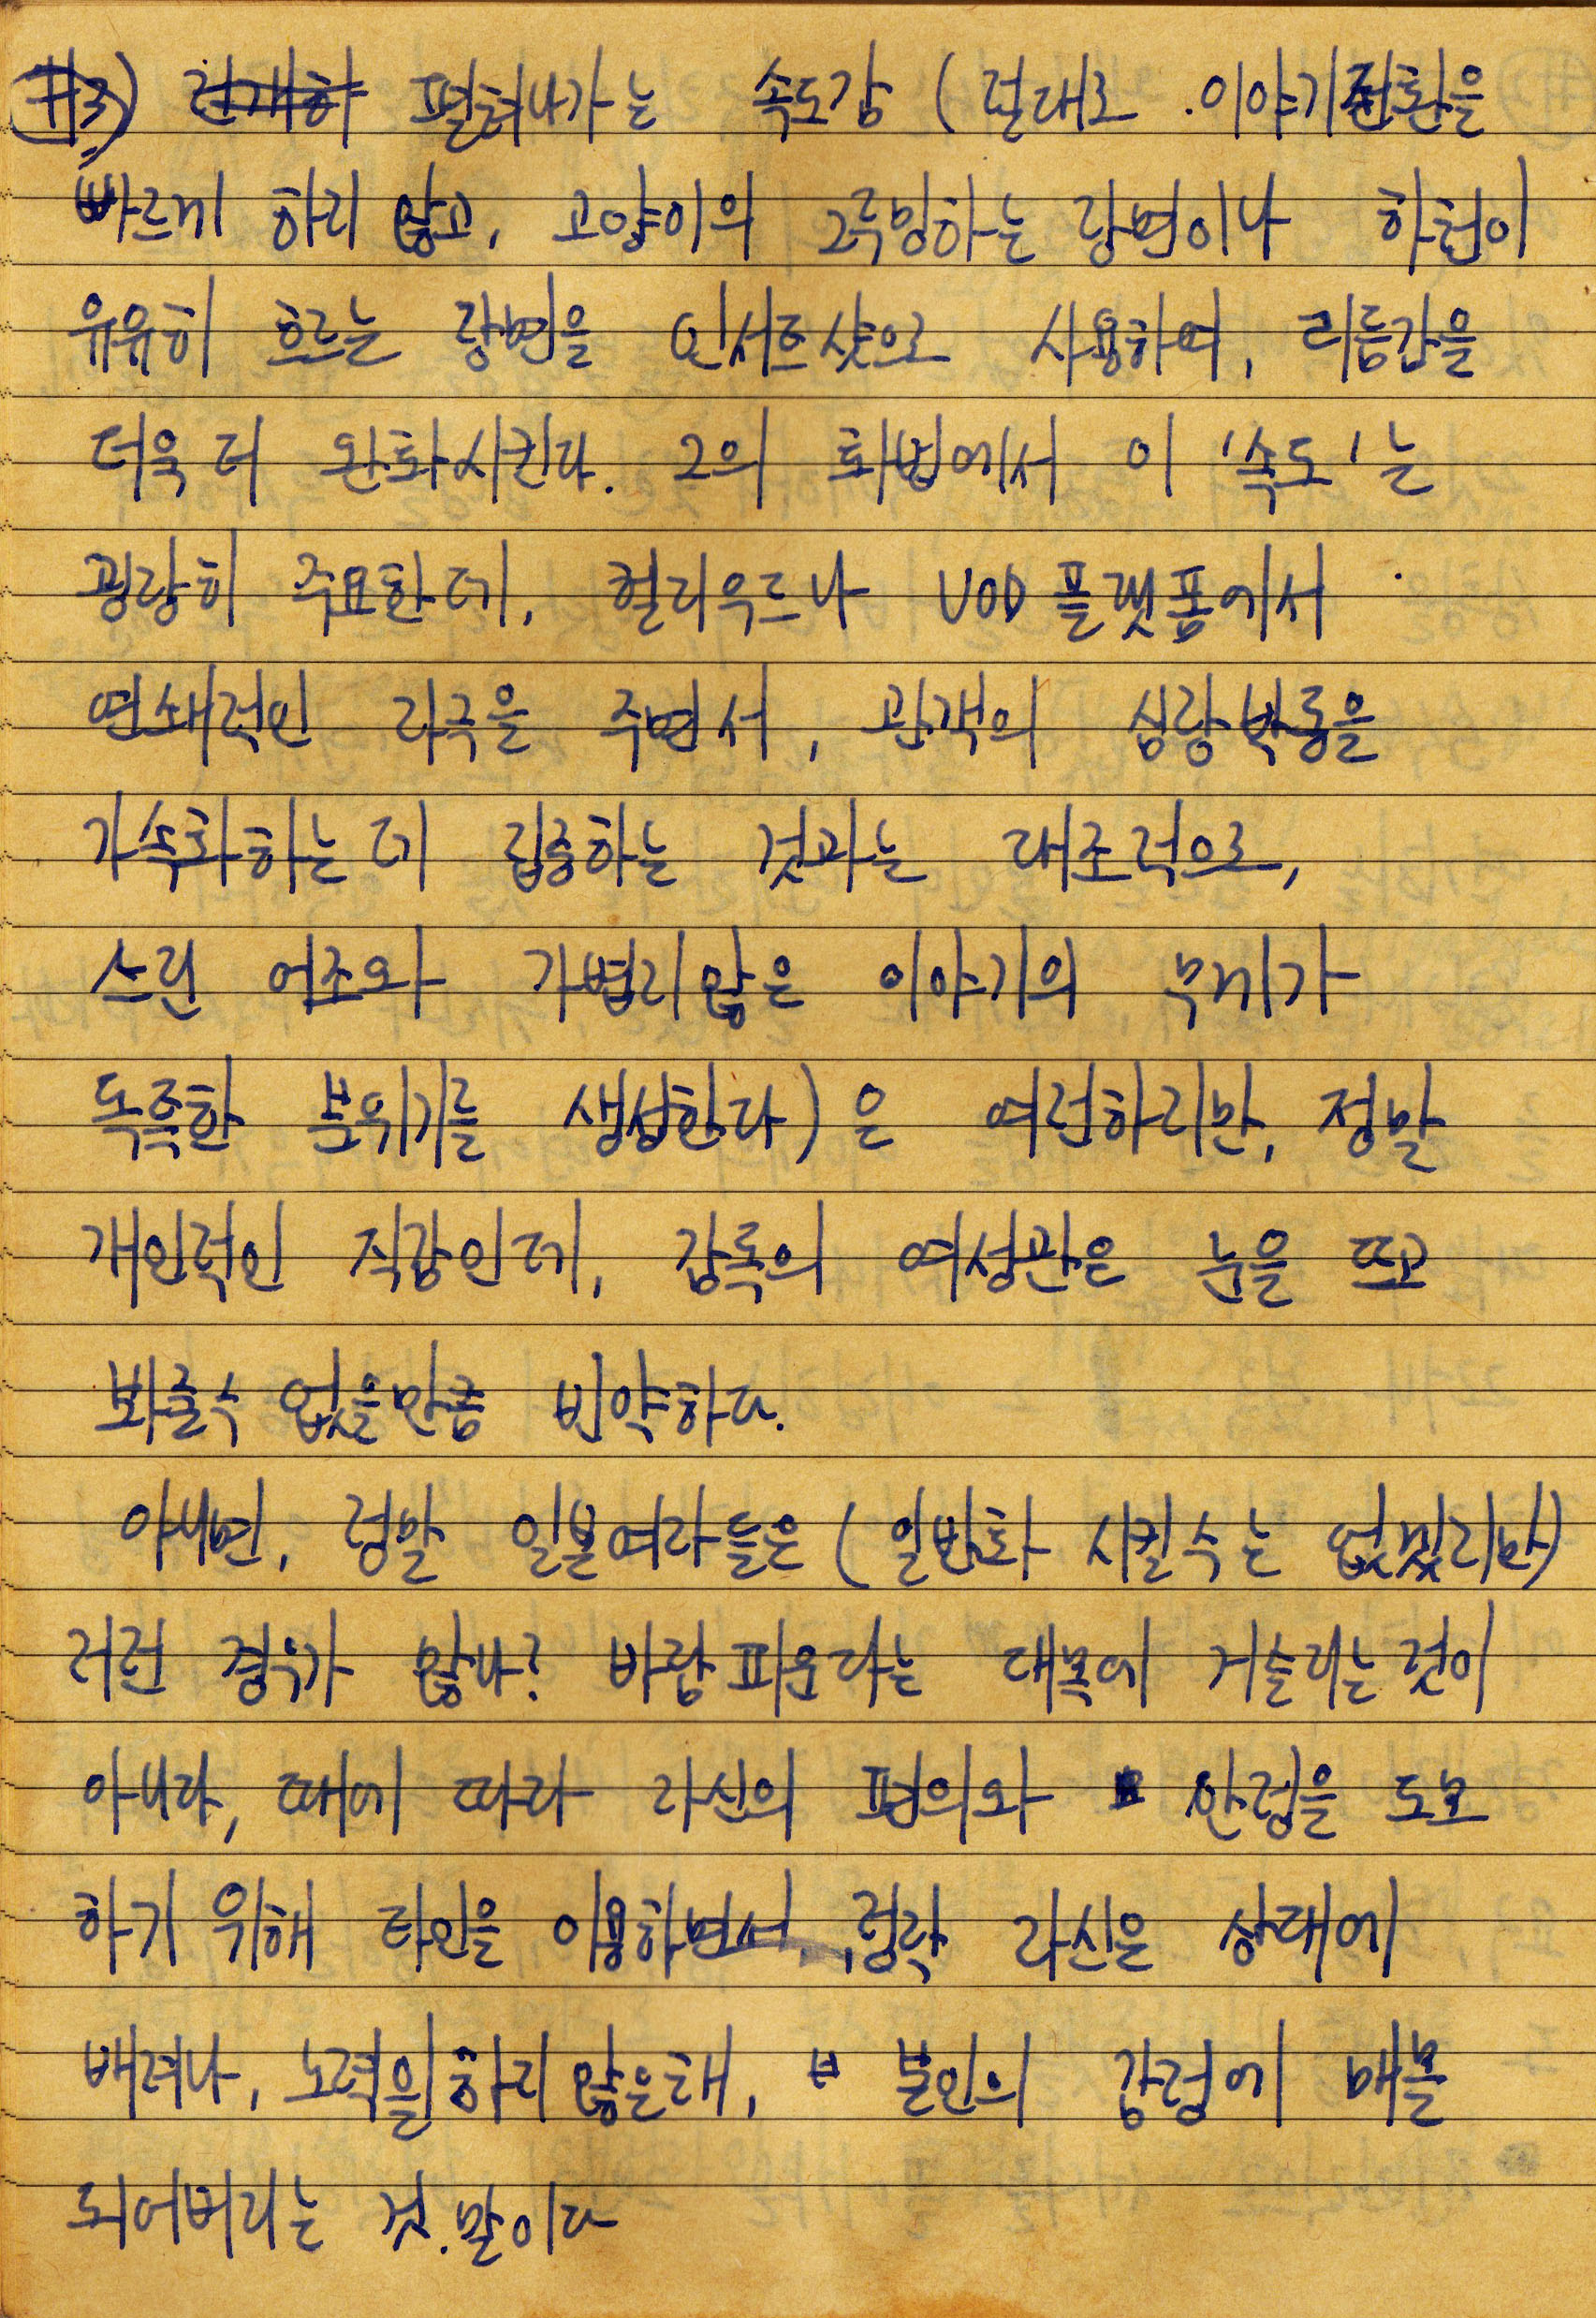 #3) 전개해 펼쳐나가는 속도감 (절대로 이야기전환을
빠르게 하지 않고, 고양이의 그루밍하는 장면이나 하천이
유유히 흐르는 장면을 인서트샷으로 사용하여, 리듬감을
더욱 더 완화시킨다. 그의 화법에서 이 '속도'는
굉장히 주요한데, 헐리우드나 VOD 플랫폼에서
연쇄적인 자극을 주면서, 관객의 심장박동을
가속화하는데 집중하는 것과는 대조적으로,
느린 어조와 가볍지않은 이야기의 무게가
독특한 분위기를 생성한다)은 여전하지만, 정말
개인적인 직감인데, 감독의 여성관은 눈을 뜨고
봐줄수 없을만큼 빈약하다.
아니면, 정말 일본여자들은 (일반화 시킬수는 없겠지만)
저런 경우가 많나? 바람피운다는 대목에 거슬리는것이
아니라, 때에 따라 자신의 편의와 안정을 도모
하기 위해 타인을 이용하면서, 정작 자신은 상대에
배려나, 노력을 하지않은채, 본인의 감정에 매몰
되어버리는 것.말이다